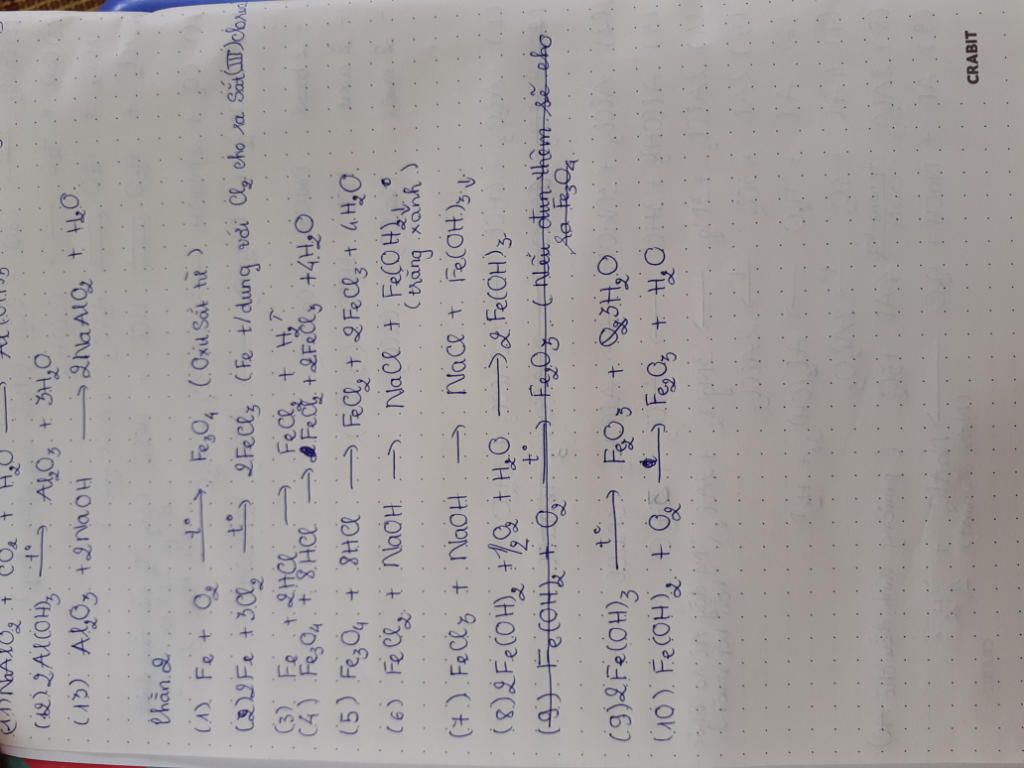 (11) NaAlO₂ + CO₂ + H₂O ⟶ Al(OH)₃
(12) 2Al(OH)₃ t°⟶ Al₂O₃ + 3H₂O
(13) Al₂O₃ + 2NaOH ⟶ 2NaAlO₂ + H₂O.
Phần 2.
(1) Fe + O₂ t°⟶ Fe₃O₄ (Oxit Sắt từ)
(2) 2Fe + 3Cl₂ t°⟶ 2FeCl₃ (Fe t/dụng với Cl₂ cho ra Sắt(III)
(3) Fe + 2HCl ⟶ FeCl₂ + H₂↑
(4) Fe₃O₄ + 8HCl ⟶ FeCl₂ + 2FeCl₃ + 4H₂O
(5) Fe₃O₄ + 8HCl ⟶ FeCl₂ + 2FeCl₃ + 4H₂O
(6) FeCl₂ + NaOH ⟶ NaCl + Fe(OH)₂↓
(trắng xanh)
(7) FeCl₃ + NaOH ⟶ NaCl + Fe(OH)₃↓
(8) 2Fe(OH)₂ + 1/2O₂ + H₂O ⟶ 2Fe(OH)₃
(9) Fe(OH)₂ + O₂ t°⟶ Fe₂O₃ (Nếu đun thêm sẽ cho
ra Fe₃O₄
(9) 2Fe(OH)₃ t°⟶ Fe₂O₃ + 3H₂O
(10) Fe(OH)₂ + O₂ ⟶ Fe₂O₃ + H₂O
CRABIT